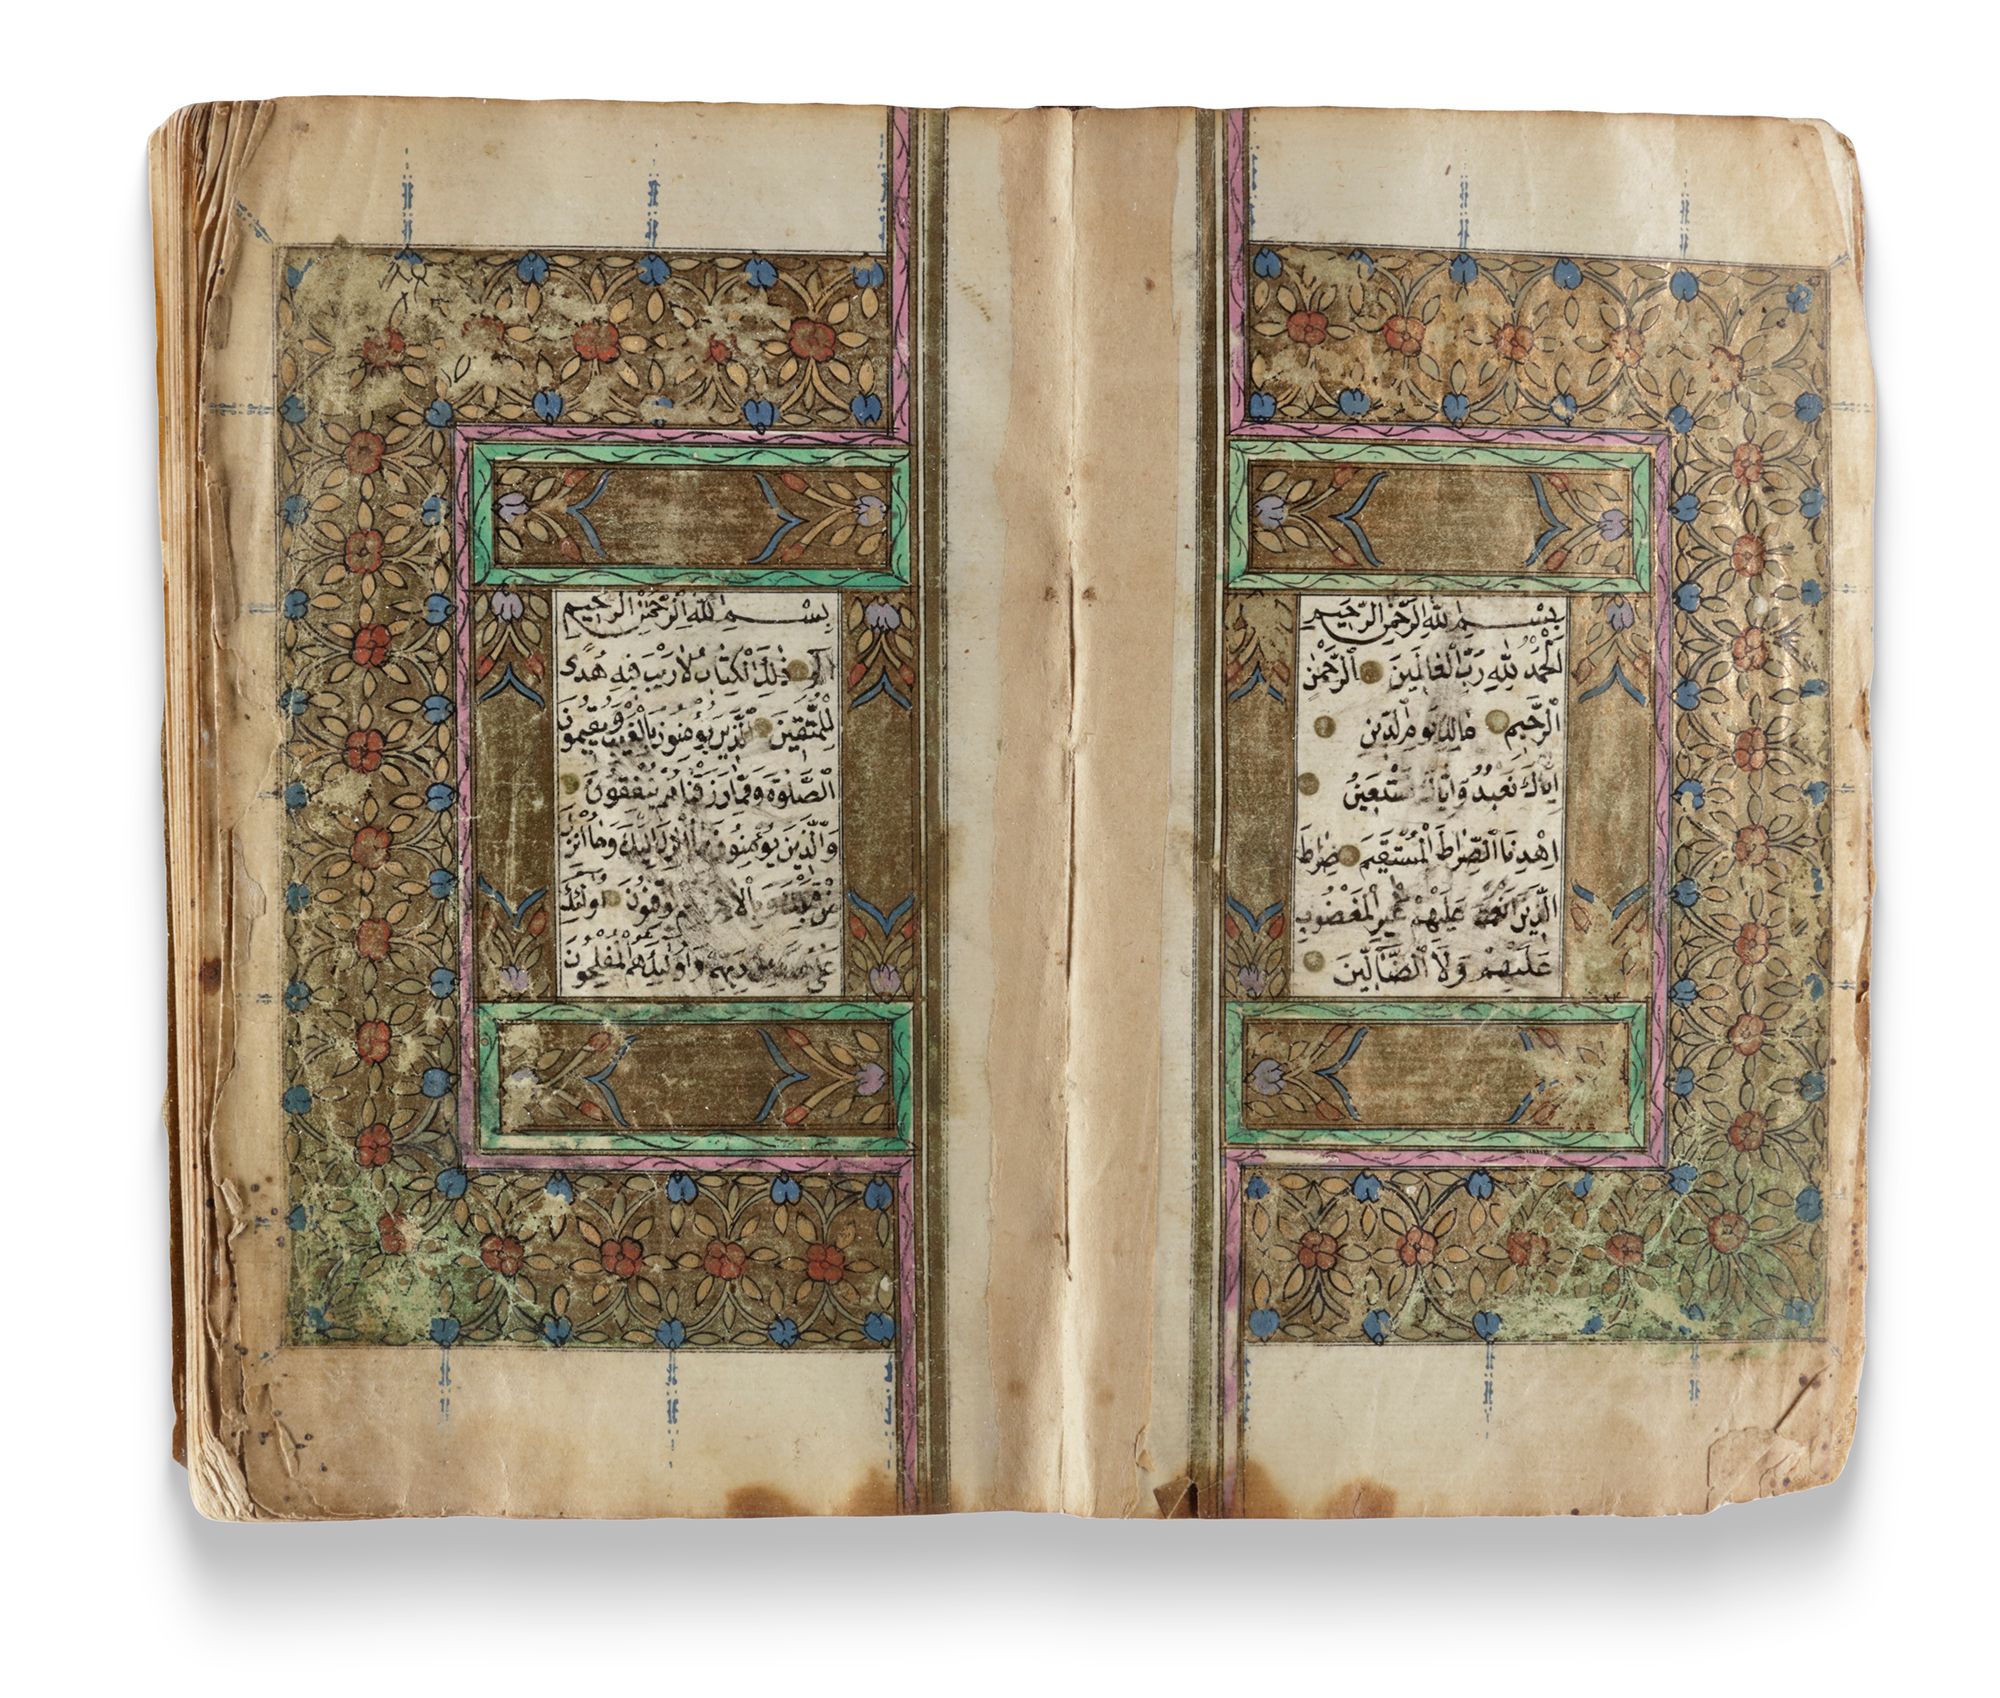 بِسْمِ اللهِ الرَّحْمٰنِ الرَّحِيمِ
اَلْحَمْدُ لِلّٰهِ رَبِّ الْعَالَمِينَ الرَّحْمٰنِ
الرَّحِيمِ مَالِكِ يَوْمِ الدِّينِ
اِيَّاكَ نَعْبُدُ وَاِيَّاكَ نَسْتَعِينُ
اِهْدِنَا الصِّرَاطَ الْمُسْتَقِيمَ صِرَاطَ
الَّذِينَ اَنْعَمْتَ عَلَيْهِمْ غَيْرِ الْمَغْضُوبِ
عَلَيْهِمْ وَلَا الضَّالِّينَ
بِسْمِ اللهِ الرَّحْمٰنِ الرَّحِيمِ
الم ذٰلِكَ الْكِتَابُ لَا رَيْبَ فِيهِ هُدًى
لِلْمُتَّقِينَ الَّذِينَ يُؤْمِنُونَ بِالْغَيْبِ وَيُقِيمُونَ
الصَّلٰوةَ وَمِمَّا رَزَقْنَاهُمْ يُنْفِقُونَ
وَالَّذِينَ يُؤْمِنُونَ بِمَا اُنْزِلَ اِلَيْكَ وَمَا اُنْزِلَ
مِنْ قَبْلِكَ وَبِالْاٰخِرَةِ هُمْ يُوقِنُونَ اُولٰئِكَ
عَلٰى مِنْ رَبِّهِمْ وَاُولٰئِكَ هُمُ الْمُفْلِحُونَ